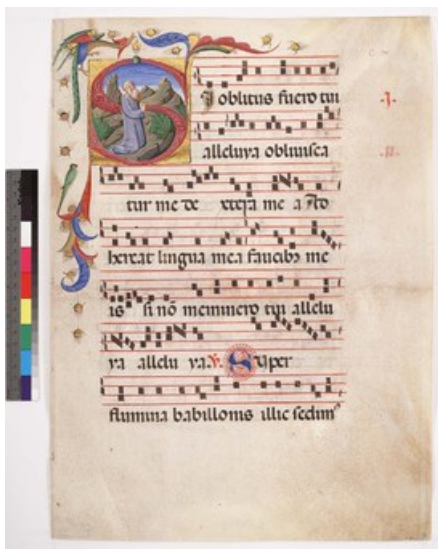 SI oblitus fuero tui
alleluya obliuisca
tur me de xtera me a Ad
hereat lingua mea faucibꝫ me
is si nō meminero tui allelu
ya allelu ya. V. Super
flumina babillonis illic sedimꝰ